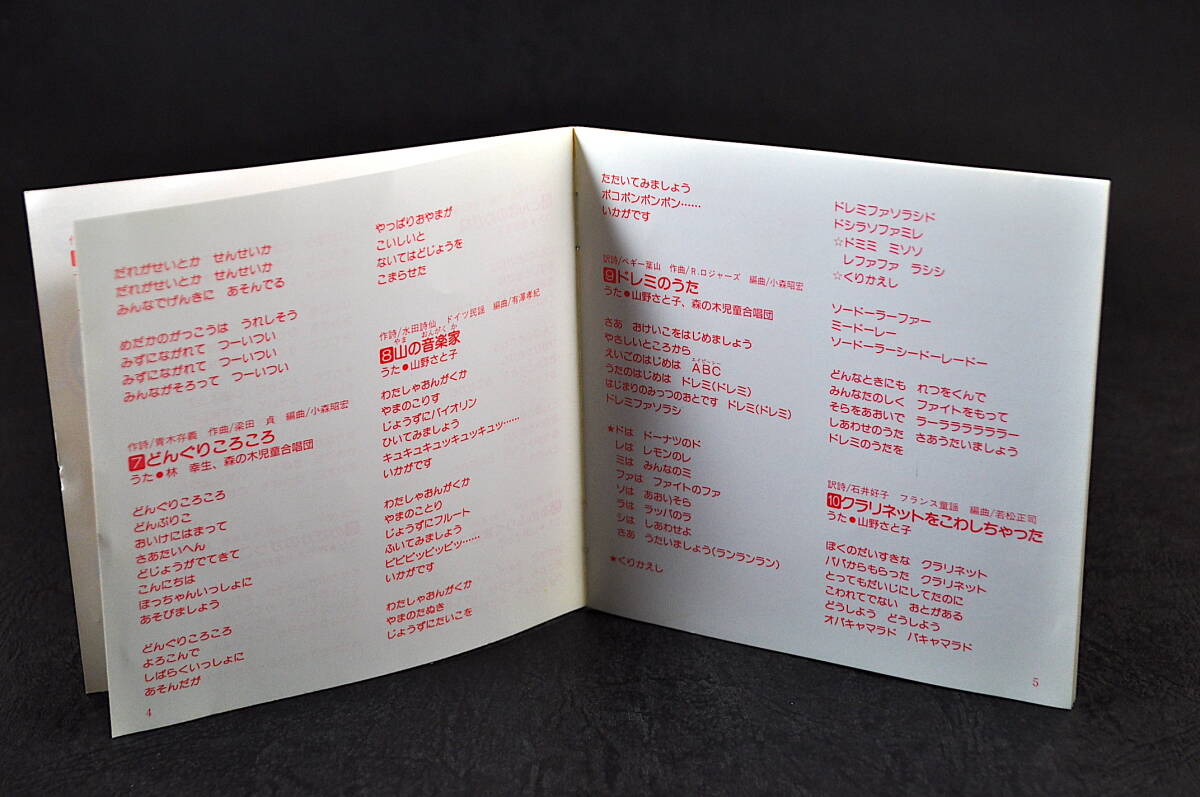 だれがせいとか　せんせいか
だれがせいとか　せんせいか
みんなでげんきに　あそんでる
めだかのがっこうは　うれしそう
みずにながれて　つーいつい
みずにながれて　つーいつい
みんながそろって　つーいつい
作詩/青木存義　作曲/梁田　貞　編曲/小森昭宏
7どんぐりころころ
うた●林　幸生、森の木児童合唱団
どんぐりころころ
どんぶりこ
おいけにはまって
さあたいへん
どじょうがでてきて
こんにちは
ぼっちゃんいっしょに
あそびましょう
どんぐりころころ
よろこんで
しばらくいっしょに
あそんだが
4
やっぱりおやまが
こいしいと
ないてはどじょうを
こまらせた
作詩/水田詩仙　ドイツ民謡　編曲/有澤孝紀
やま　おんがくか
8山の音楽家
うた●山野さと子
わたしゃおんがくか
やまのこりす
じょうずにバイオリン
ひいてみましょう
キュキュキュッキュッキュッ……
いかがです
わたしゃおんがくか
やまのことり
じょうずにフルート
ふいてみましょう
ピピピッピッピッ……
いかがです
わたしゃおんがくか
やまのたぬき
じょうずにたいこを
たたいてみましょう
ポコポンポンポン……
いかがです
訳詩/ペギー葉山　作曲/R.ロジャーズ　編曲/小森昭宏
9ドレミのうた
うた●山野さと子、森の木児童合唱団
さあ　おけいこをはじめましょう
やさしいところから
エイビーシー
えいごのはじめは　ABC
うたのはじめは　ドレミ(ドレミ)
はじまりのみっつのおとです　ドレミ(ドレミ)
ドレミファソラシ
★ドは　ドーナツのド
レは　レモンのレ
ミは　みんなのミ
ファは　ファイトのファ
ソは　あおいそら
ラは　ラッパのラ
シは　しあわせよ
さあ　うたいましょう(ランランラン)
★くりかえし
ドレミファソラシド
ドシラソファミレ
☆ドミミ　ミソソ
レファファ　ラシシ
☆くりかえし
ソードーラーファー
ミードーレー
ソードーラーシードーレードー
どんなときにも　れつをくんで
みんなたのしく　ファイトをもって
そらをあおいで　ラーララララララー
しあわせのうた　さあうたいましょう
ドレミのうたを
訳詩/石井好子　フランス童謡　編曲/若松正司
10クラリネットをこわしちゃった
うた●山野さと子
ぼくのだいすきな　クラリネット
パパからもらった　クラリネット
とってもだいじにしてたのに
こわれてでない　おとがある
どうしよう　どうしよう
オパキャマラド　パキャマラド
5